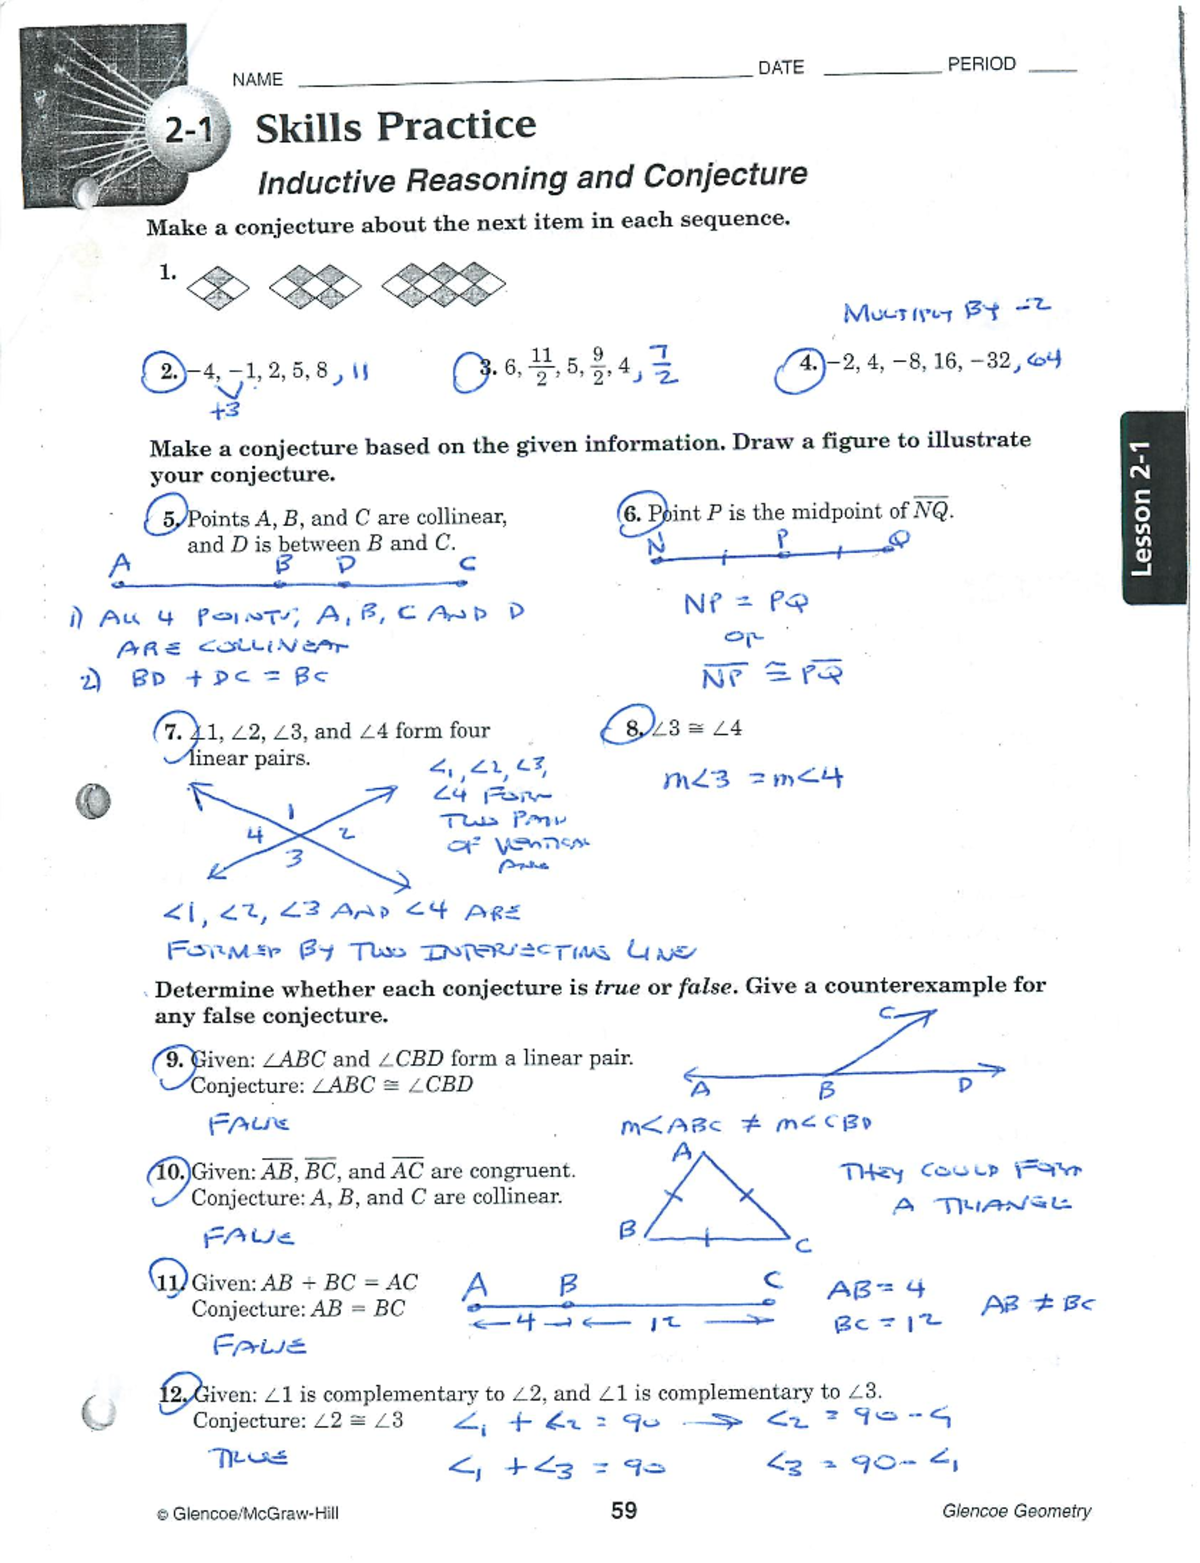 NAME DATE PERIOD
2-1 Skills Practice
Inductive Reasoning and Conjecture
Make a conjecture about the next item in each sequence.
1.
MULTIPLY BY -2
2. -4, -1, 2, 5, 8, 11
+3
3. 6, 11/2, 5, 9/2, 4, 7/2
4. -2, 4, -8, 16, -32, 64
Make a conjecture based on the given information. Draw a figure to illustrate
your conjecture.
Lesson 2-1
5. Points A, B, and C are collinear,
and D is between B and C.
A B D C
1) ALL 4 POINTS, A, B, C AND D
ARE COLLINEAR
2) BD + DC = BC
6. Point P is the midpoint of NQ.
N P Q
NP = PQ
OR
NP ≅ PQ
7. ∠1, ∠2, ∠3, and ∠4 form four
linear pairs.
1
4 2
3
∠1, ∠2, ∠3,
∠4 FORM
TWO PAIR
OF VERTICAL
∠1, ∠2, ∠3 AND ∠4 ARE
FORMED BY TWO INTERSECTING LINES
8. ∠3 ≅ ∠4
m∠3 = m∠4
Determine whether each conjecture is true or false. Give a counterexample for
any false conjecture.
9. Given: ∠ABC and ∠CBD form a linear pair.
Conjecture: ∠ABC ≅ ∠CBD
FALSE
C
A B D
m∠ABC ≠ m∠CBD
10. Given: AB, BC, and AC are congruent.
Conjecture: A, B, and C are collinear.
FALSE
A
B C
THEY COULD FORM
A TRIANGLE
11. Given: AB + BC = AC
Conjecture: AB = BC
FALSE
A B C
4 12
AB = 4
BC = 12
AB ≠ BC
12. Given: ∠1 is complementary to ∠2, and ∠1 is complementary to ∠3.
Conjecture: ∠2 ≅ ∠3
TRUE
∠1 + ∠2 = 90 → ∠2 = 90 - ∠1
∠1 + ∠3 = 90 ∠3 = 90 - ∠1
© Glencoe/McGraw-Hill 59 Glencoe Geometry